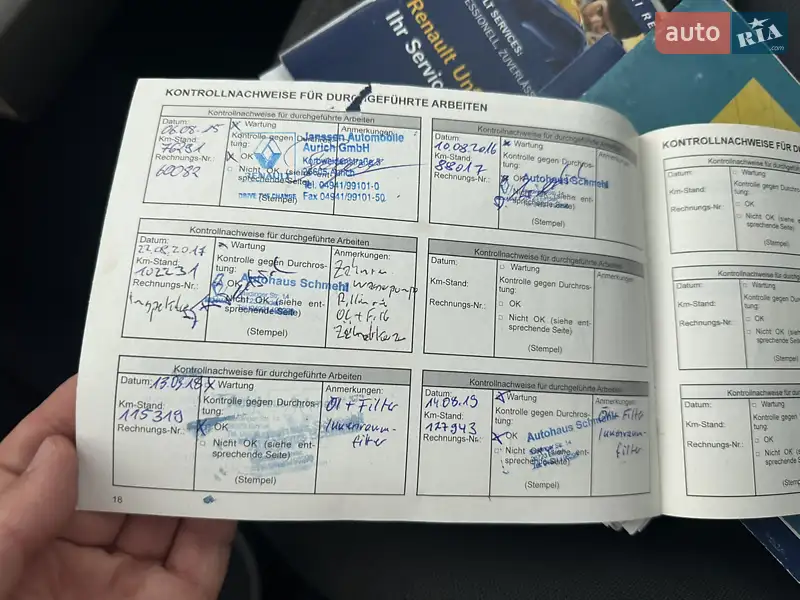 auto RIA .com
Renault
Ihr Servic
LT SERVICES:
KONTROLLNACHWEISE FÜR DURCHGEFÜHRTE ARBEITEN
Kontrollnachweise für durchgeführte Arbeiten
Datum: 06.08.15
Km-Stand: 76281
Rechnungs-Nr.: 60082
x Wartung
Kontrolle gegen Durchros-
tung:
x OK
Nicht OK (siehe ent-
sprechende Seite)
(Stempel)
Anmerkungen:
RENAULT
DRIVE THE CHANGE
Janssen Automobile
Aurich GmbH
Tel. 04941/99101-0
Fax 04941/99101-50
Kontrollnachweise für durchgeführte Arbeiten
Datum: 10.08.2016
Km-Stand: 88017
Rechnungs-Nr.:
x Wartung
Kontrolle gegen Durchros-
tung:
OK
Nicht OK (siehe ent-
sprechende Seite)
(Stempel)
Anmerkungen:
Autohaus Schmehl
Kontrollnachweise für durchgeführte Arbeiten
Datum: 22.08.2017
Km-Stand: 102231
Rechnungs-Nr.:
Wartung
Kontrolle gegen Durchros-
tung:
OK
Nicht OK (siehe ent-
sprechende Seite)
(Stempel)
Autohaus Schmehl
Anmerkungen:
Wasserpumpe
Öl + Filt
Kontrollnachweise für durchgeführte Arbeiten
Datum:
Km-Stand:
Rechnungs-Nr.:
□ Wartung
Kontrolle gegen Durchros-
tung:
□ OK
□ Nicht OK (siehe ent-
sprechende Seite)
(Stempel)
Anmerkungen:
Kontrollnachweise für durchgeführte Arbeiten
Datum: 13.09.18
Km-Stand: 115319
Rechnungs-Nr.:
x Wartung
Kontrolle gegen Durchros-
tung:
x OK
□ Nicht OK (siehe ent-
sprechende Seite)
(Stempel)
Anmerkungen:
Öl + Filter
Innenraum-
filter
Kontrollnachweise für durchgeführte Arbeiten
Datum: 14.08.19
Km-Stand: 127943
Rechnungs-Nr.:
x Wartung
Kontrolle gegen Durchros-
tung:
x OK
□ Nicht OK (siehe ent-
sprechende Seite)
(Stempel)
Autohaus Schmehl
Anmerkungen:
Filter
Innenraum-
filter
16
KONTROLLNACHWEISE FÜR D
Kontrollnachweise für durch
Datum:
Km-Stand:
Rechnungs-Nr.:
□ Wartung
Kontrolle gegen
tung:
□ OK
□ Nicht OK (si
sprechende S
(Stemp
Kontrollnachweise für durch
Datum:
Km-Stand:
Rechnungs-Nr.:
□ Wartung
Kontrolle gegen
tung:
□ OK
□ Nicht OK
sprechende
(Stemp
Kontrollnachweise für durc
Datum:
Km-Stand:
Rechnungs-Nr.:
□ Wartung
Kontrolle gege
tung:
□ OK
□ Nicht OK (
sprechende
(Stemp